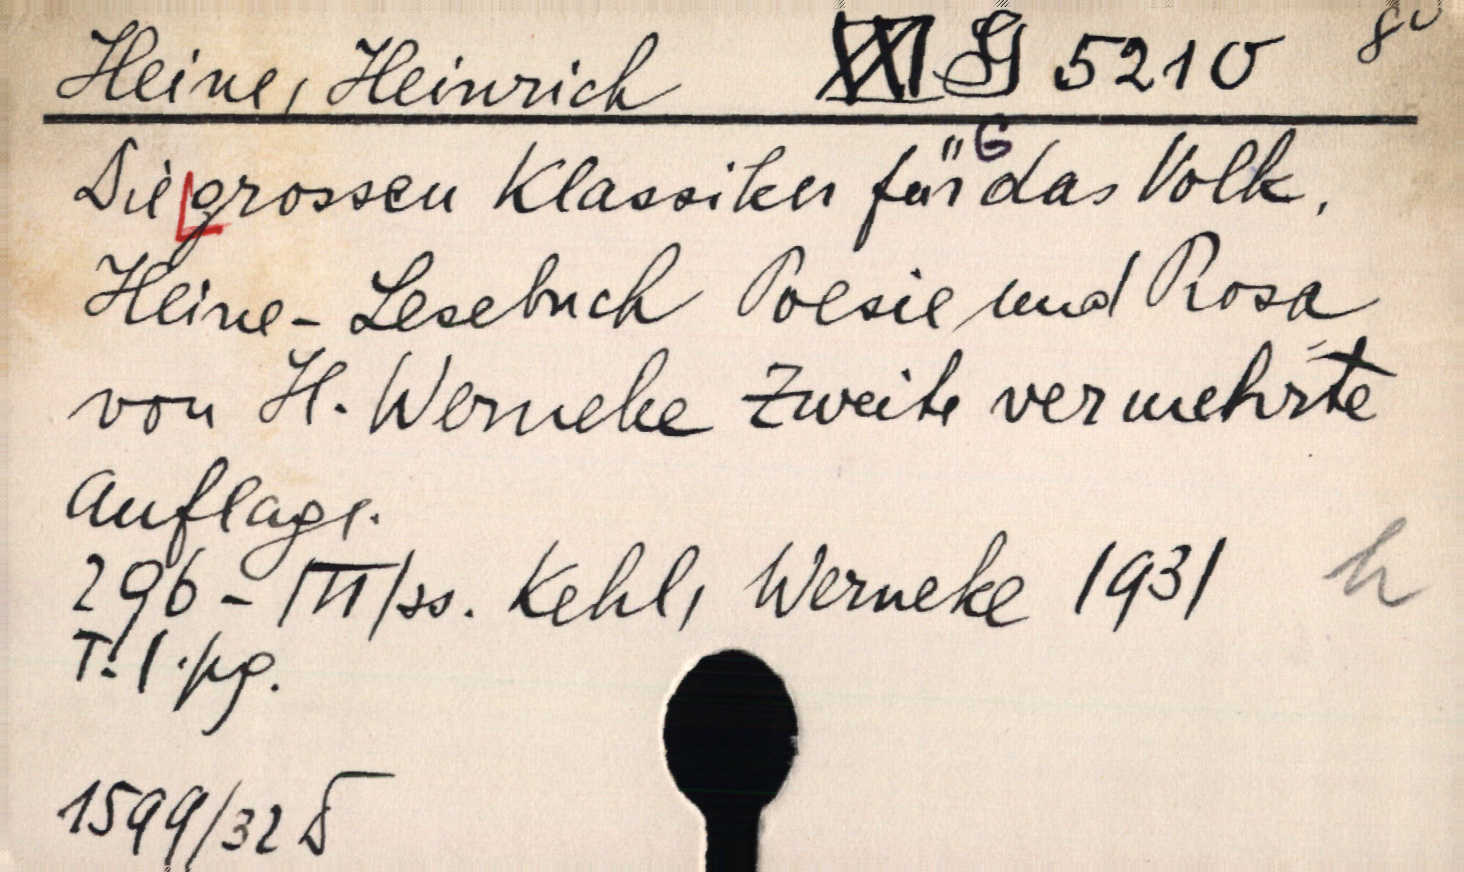 Heine, Heinrich XXI G 5210 8°
Die grossen Klassiker für das Volk,
G
Heine - Lesebuch Poesie und Rosa
von H. Werneke Zweite vermehrte
auflage.
296 - /III/ss. Kehl, Werneke 1931 h
T. 1. pg.
1599/32 D